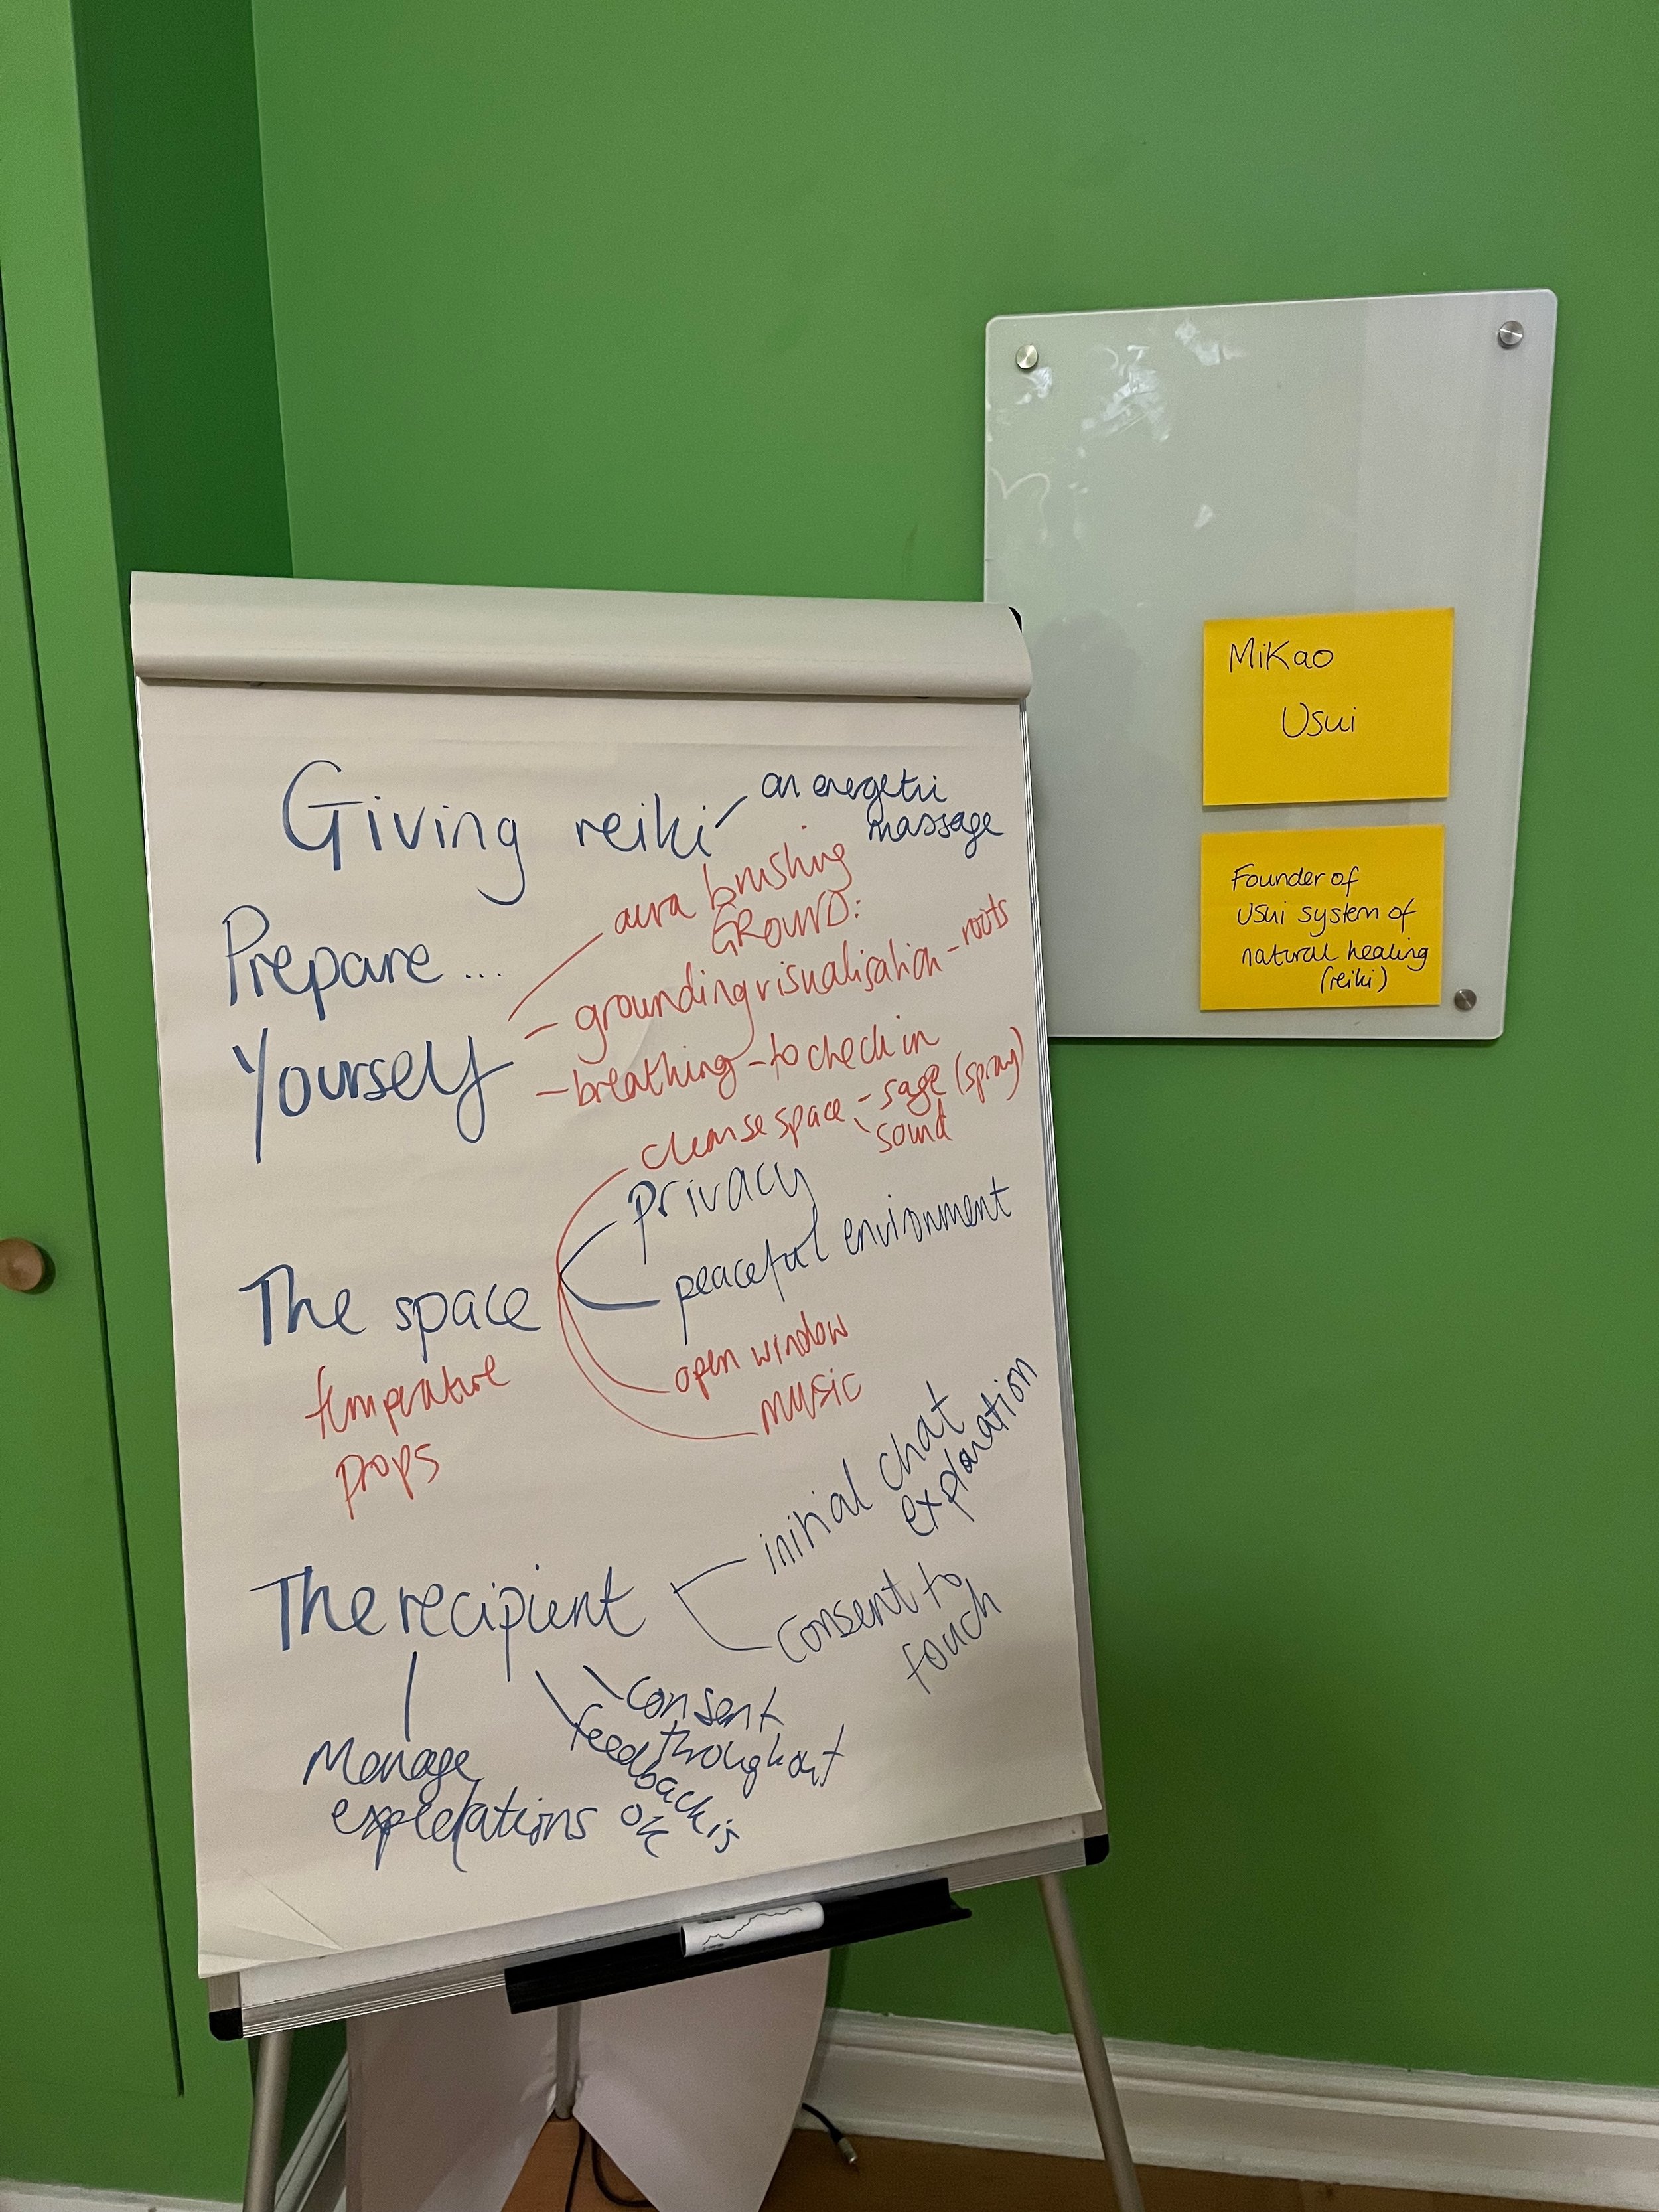 Giving reiki
an energetic
massage
Prepare...
Yourself
aura brushing
GROUND:
- grounding visualisation - roots
- breathing - to check in
cleanse space - sage (spray)
sound
The space
privacy
peaceful environment
open window
music
temperature
props
The recipient
initial chat
explanation
consent to
touch
consent
throughout
feedback is
ok
Manage
expectations
MiKao
Usui
Founder of
Usui system of
natural healing
(reiki)